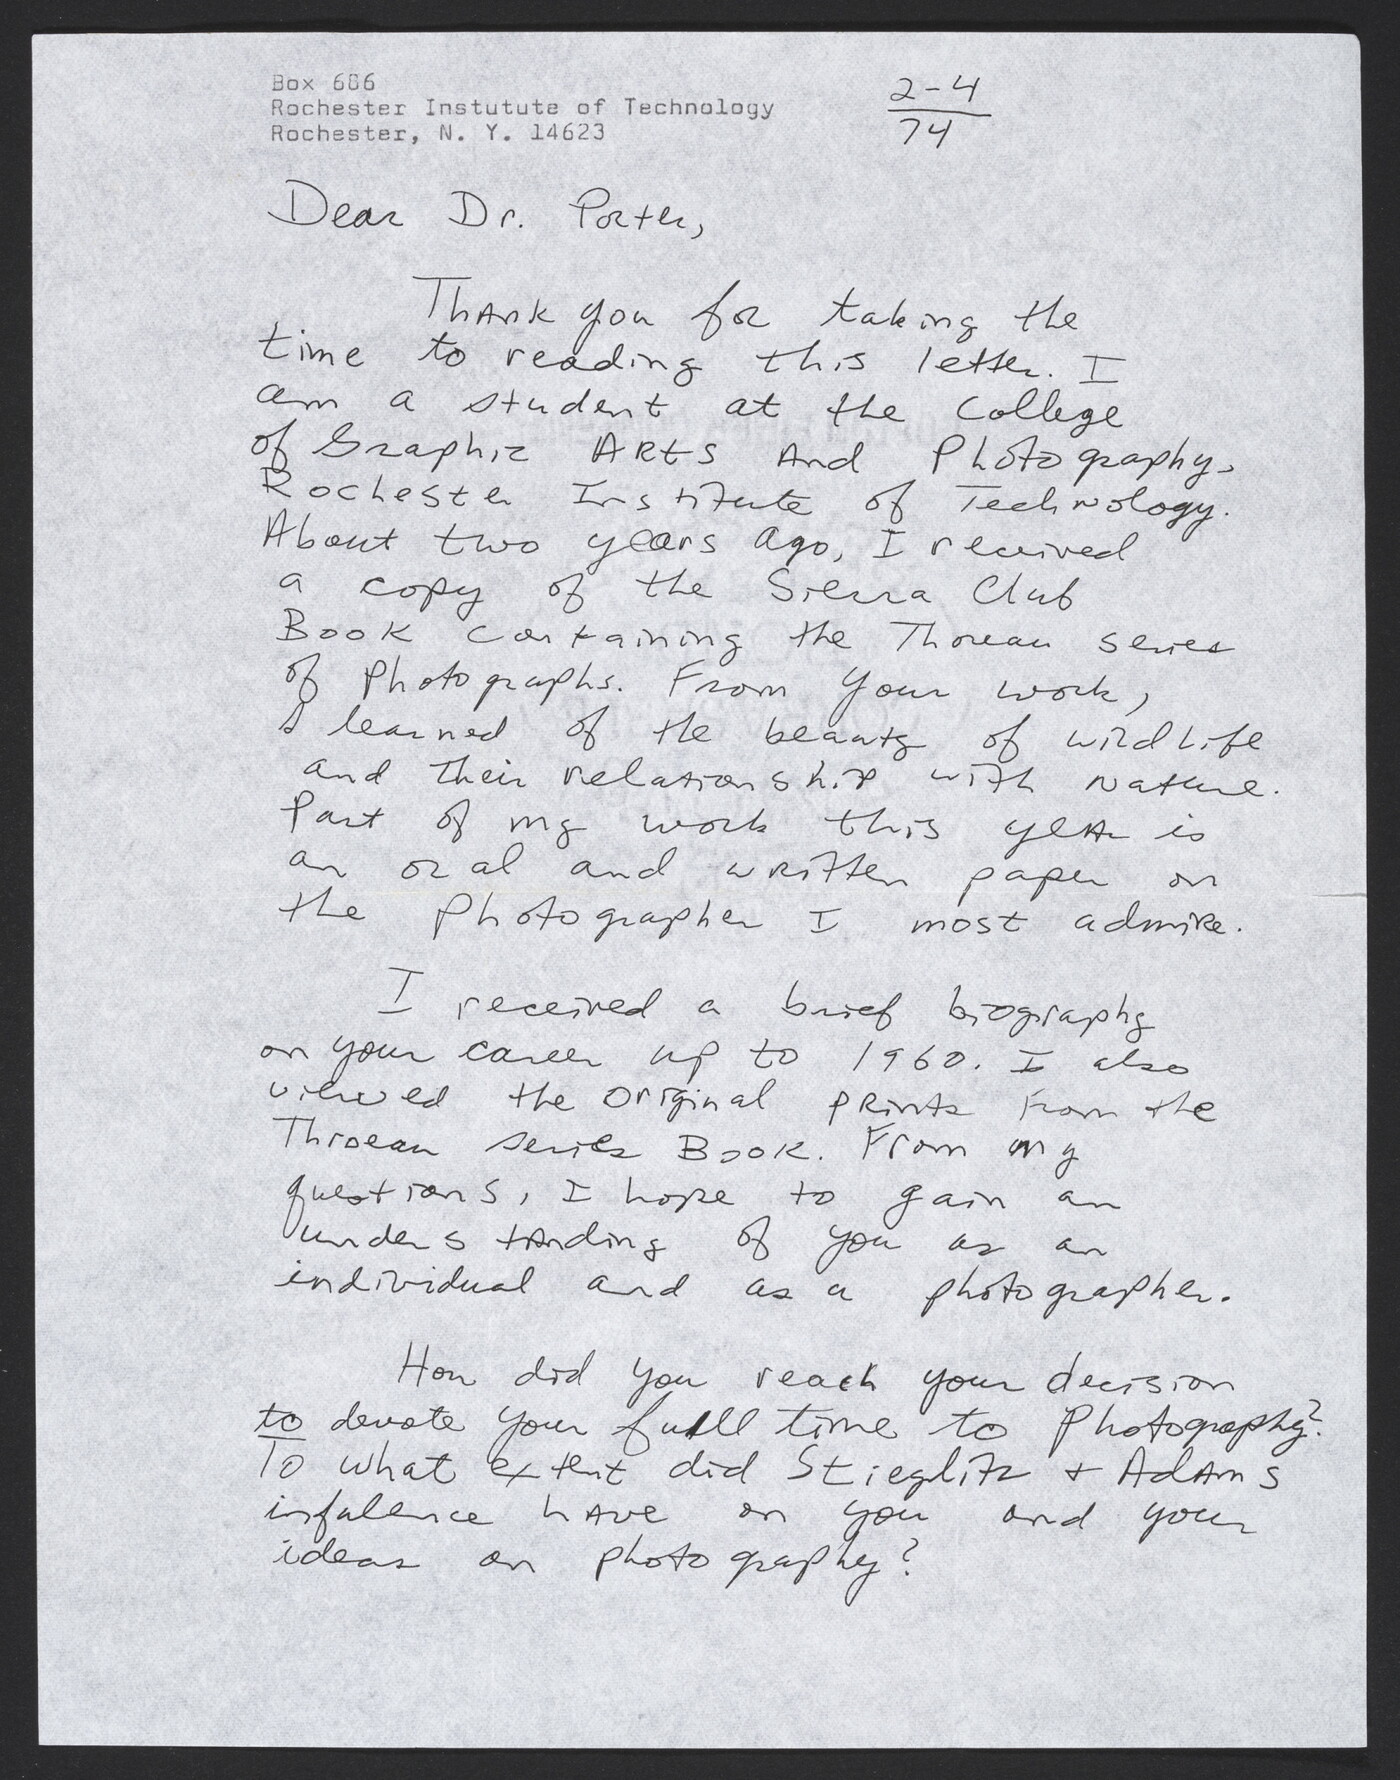 Box 686
Rochester Instutute of Technology
Rochester, N. Y. 14623
2-4
74
Dear Dr. Porter,
Thank you for taking the
time to reading this letter. I
am a student at the College
of Graphic Arts and Photography,
Rochester Institute of Technology.
About two years ago, I received
a copy of the Sierra Club
Book containing the Thoreau series
of Photographs. From your work,
I learned of the beauty of wildlife
and their relationship with nature.
Part of my work this year is
an oral and written paper on
the photographer I most admire.
I received a brief biography
on your career up to 1960. I also
viewed the original prints from the
Throeau series Book. From my
questions, I hope to gain an
understanding of you as an
individual and as a photographer.
How did you reach your decision
to devote your full time to Photography?
To what extent did Stieglitz + Adams
infulence have on you and your
ideas on photography?